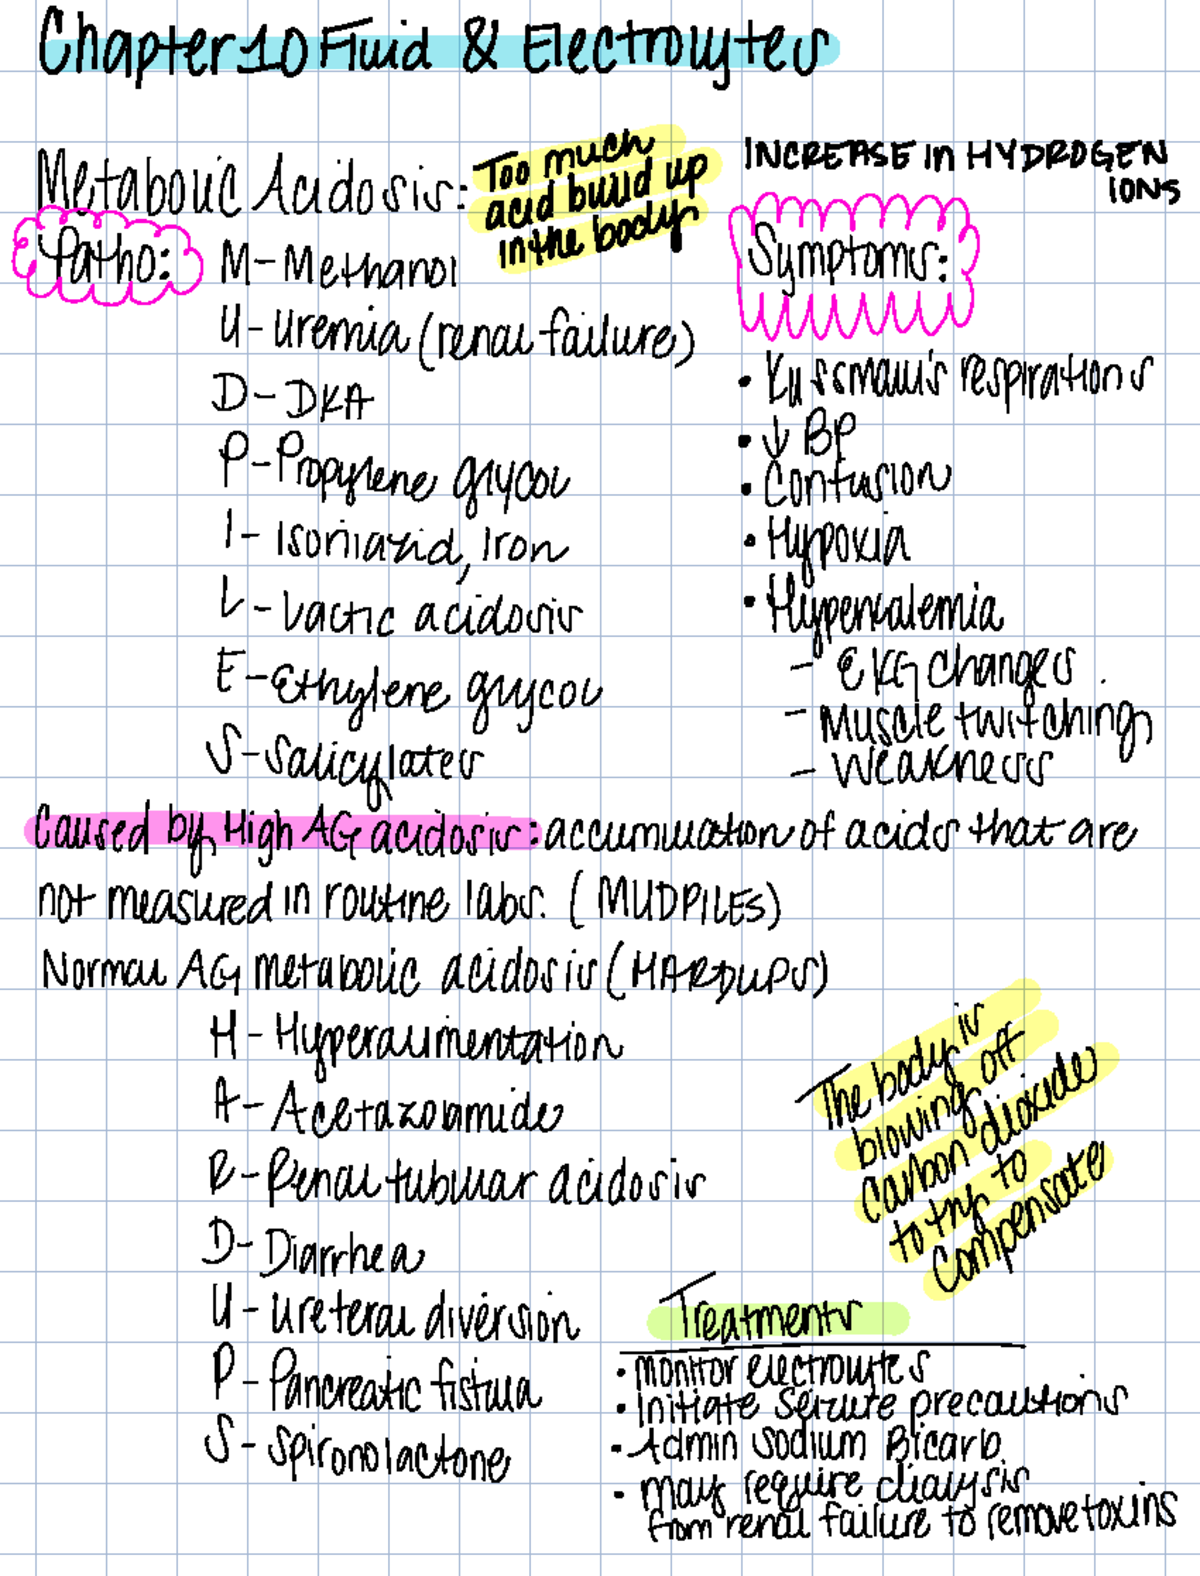 Chapter 10 Fluid & Electrolytes
Metabolic Acidosis:
Too much
acid build up
in the body
INCREASE in HYDROGEN
IONS
Patho:
M-Methanol
U-Uremia (renal failure)
D-DKA
P-Propylene glycol
I-Isoniazid, Iron
L-Lactic acidosis
E-Ethylene glycol
S-Salicylates
Symptoms:
• Kussmaul's respirations
• ↓ BP
• Confusion
• Hypoxia
• Hyperkalemia
- EKG changes
- Muscle twitching
- Weakness
Caused by High AG acidosis: accumulation of acids that are
not measured in routine labs. (MUDPILES)
Normal AG metabolic acidosis (HARDUPS)
H-Hyperalimentation
A-Acetazolamide
R-Renal tubular acidosis
D-Diarrhea
U-Ureteral diversion
P-Pancreatic fistula
S-Spironolactone
The body is
blowing off
carbon dioxide
to try to
compensate
Treatments
• Monitor electrolytes
• Initiate seizure precautions
• Admin Sodium Bicarb
• May require dialysis
from renal failure to remove toxins